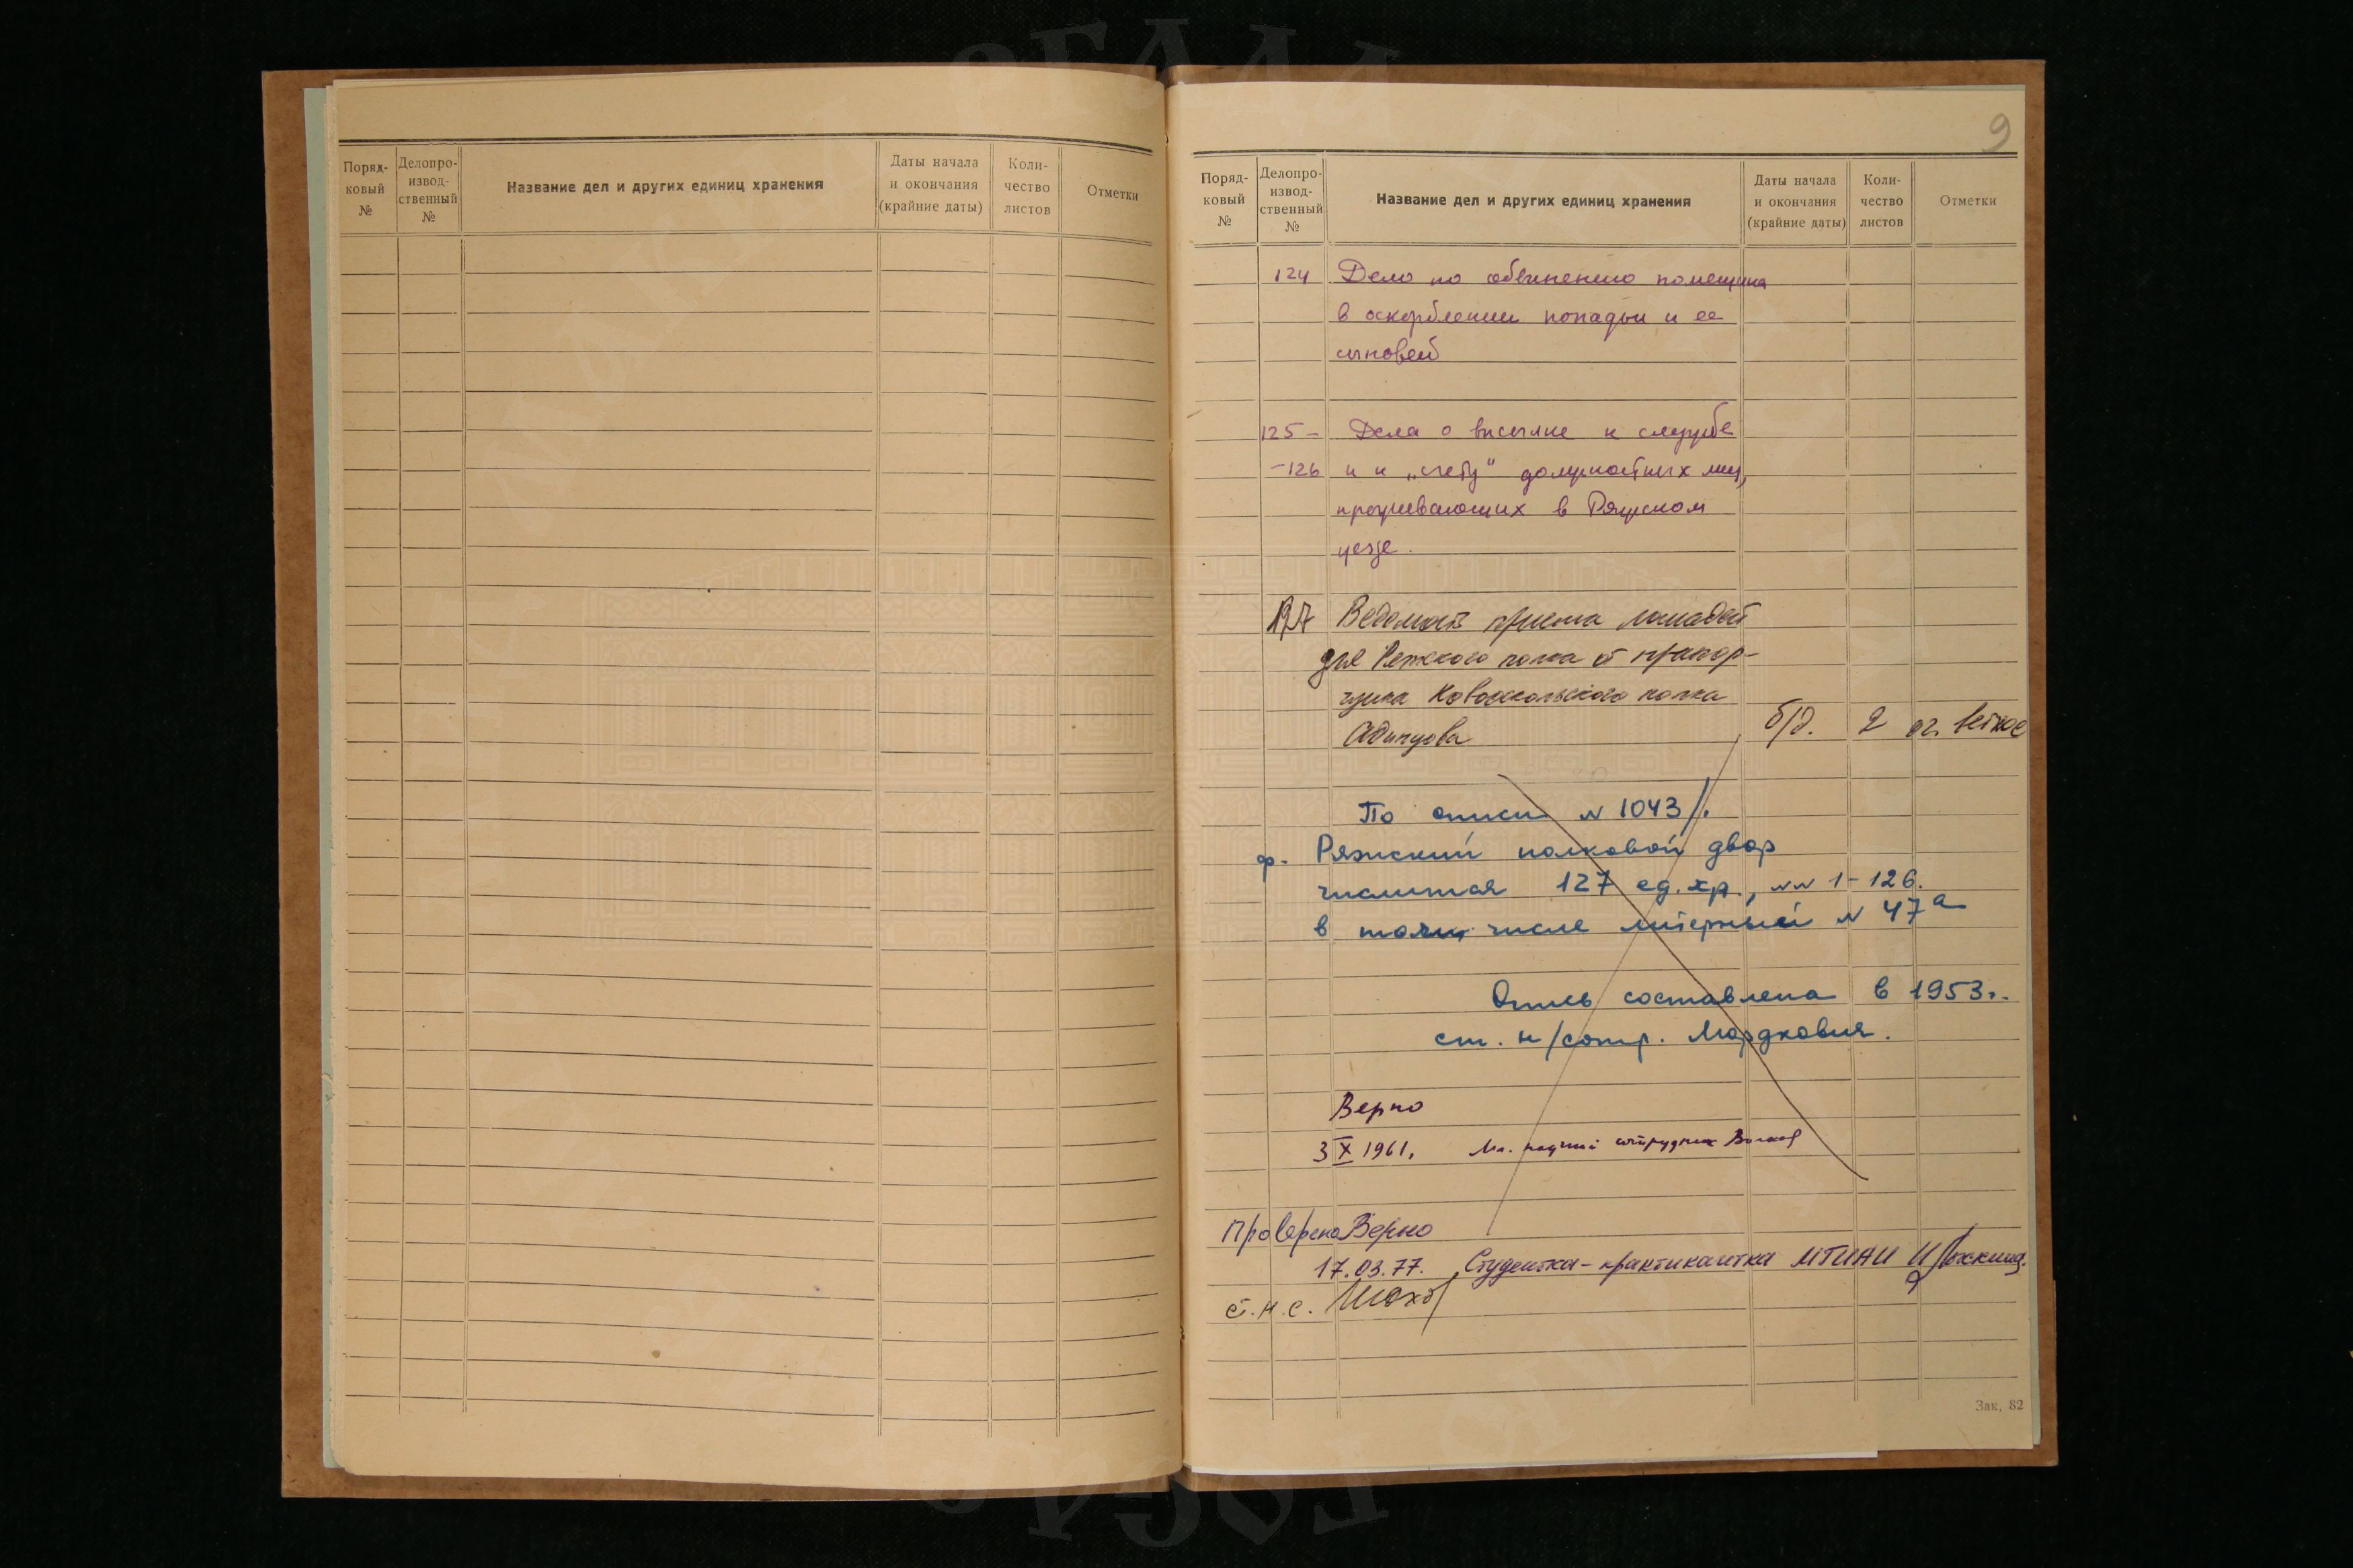 Поряд-
ковый
№
Делопро-
извод-
ственный
№
Название дел и других единиц хранения
Даты начала
и окончания
(крайние даты)
Коли-
чество
листов
Отметки
9
Поряд-
ковый
№
Делопро-
извод-
ственный
№
Название дел и других единиц хранения
Даты начала
и окончания
(крайние даты)
Коли-
чество
листов
Отметки
124 Дело по обвинению помещика
в оскорблении попадьи и ее
сыновей
125- Дела о высылке к службе
-126 и к „счету" должностных лиц,
проживающих в Ряжском
уезде.
127 Ведомость приема лошадей
для Ряжского полка от прапор-
щика Новооскольского полка
Адинцова б/д. 2 оч. ветхое
По описи № 1043/1.
ф. Ряжский полковой двор
числится 127 ед. хр., №№ 1-126.
в том числе литерный № 47а
Опись составлена в 1953 г.
ст. н/сотр. Мордкович.
Верно
3 X 1961. Мл. научный сотрудник
Проверено Верно
17.03.77. Студентка-практикантка МГИАИ
ст.н.с.
Зак. 82